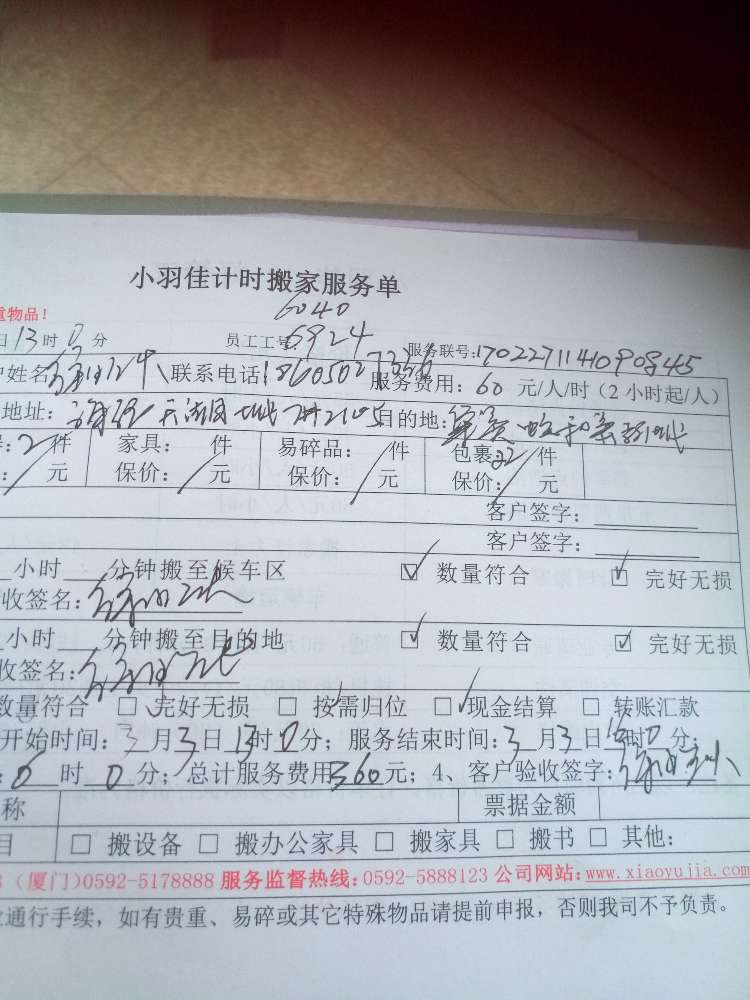 小羽佳计时搬家服务单
重物品!
6040
日13时0分 员工工号:6924 服务联号:1702271141090845
姓名: 联系电话: 服务费用:60元/人/时(2小时起/人)
地址: 天湖 目的地:
:2件 家具: 件 易碎品: 件 包裹:22件
: 元 保价: 元 保价: 元 保价: 元
客户签字:
客户签字:
小时 分钟搬至候车区 ☑ 数量符合 ☑ 完好无损
收签名:
小时 分钟搬至目的地 ☑ 数量符合 ☑ 完好无损
收签名:
数量符合 □ 完好无损 □ 按需归位 □ 现金结算 □ 转账汇款
开始时间:3月3日13时0分;服务结束时间:3月3日16时0分;
:6时0分;总计服务费用360元;4、客户验收签字:
称 票据金额
目 □ 搬设备 □ 搬办公家具 □ 搬家具 □ 搬书 □ 其他:
(厦门)0592-5178888 服务监督热线:0592-5888123 公司网站:www.xiaoyujia.com
通行手续,如有贵重、易碎或其它特殊物品请提前申报,否则我司不予负责。